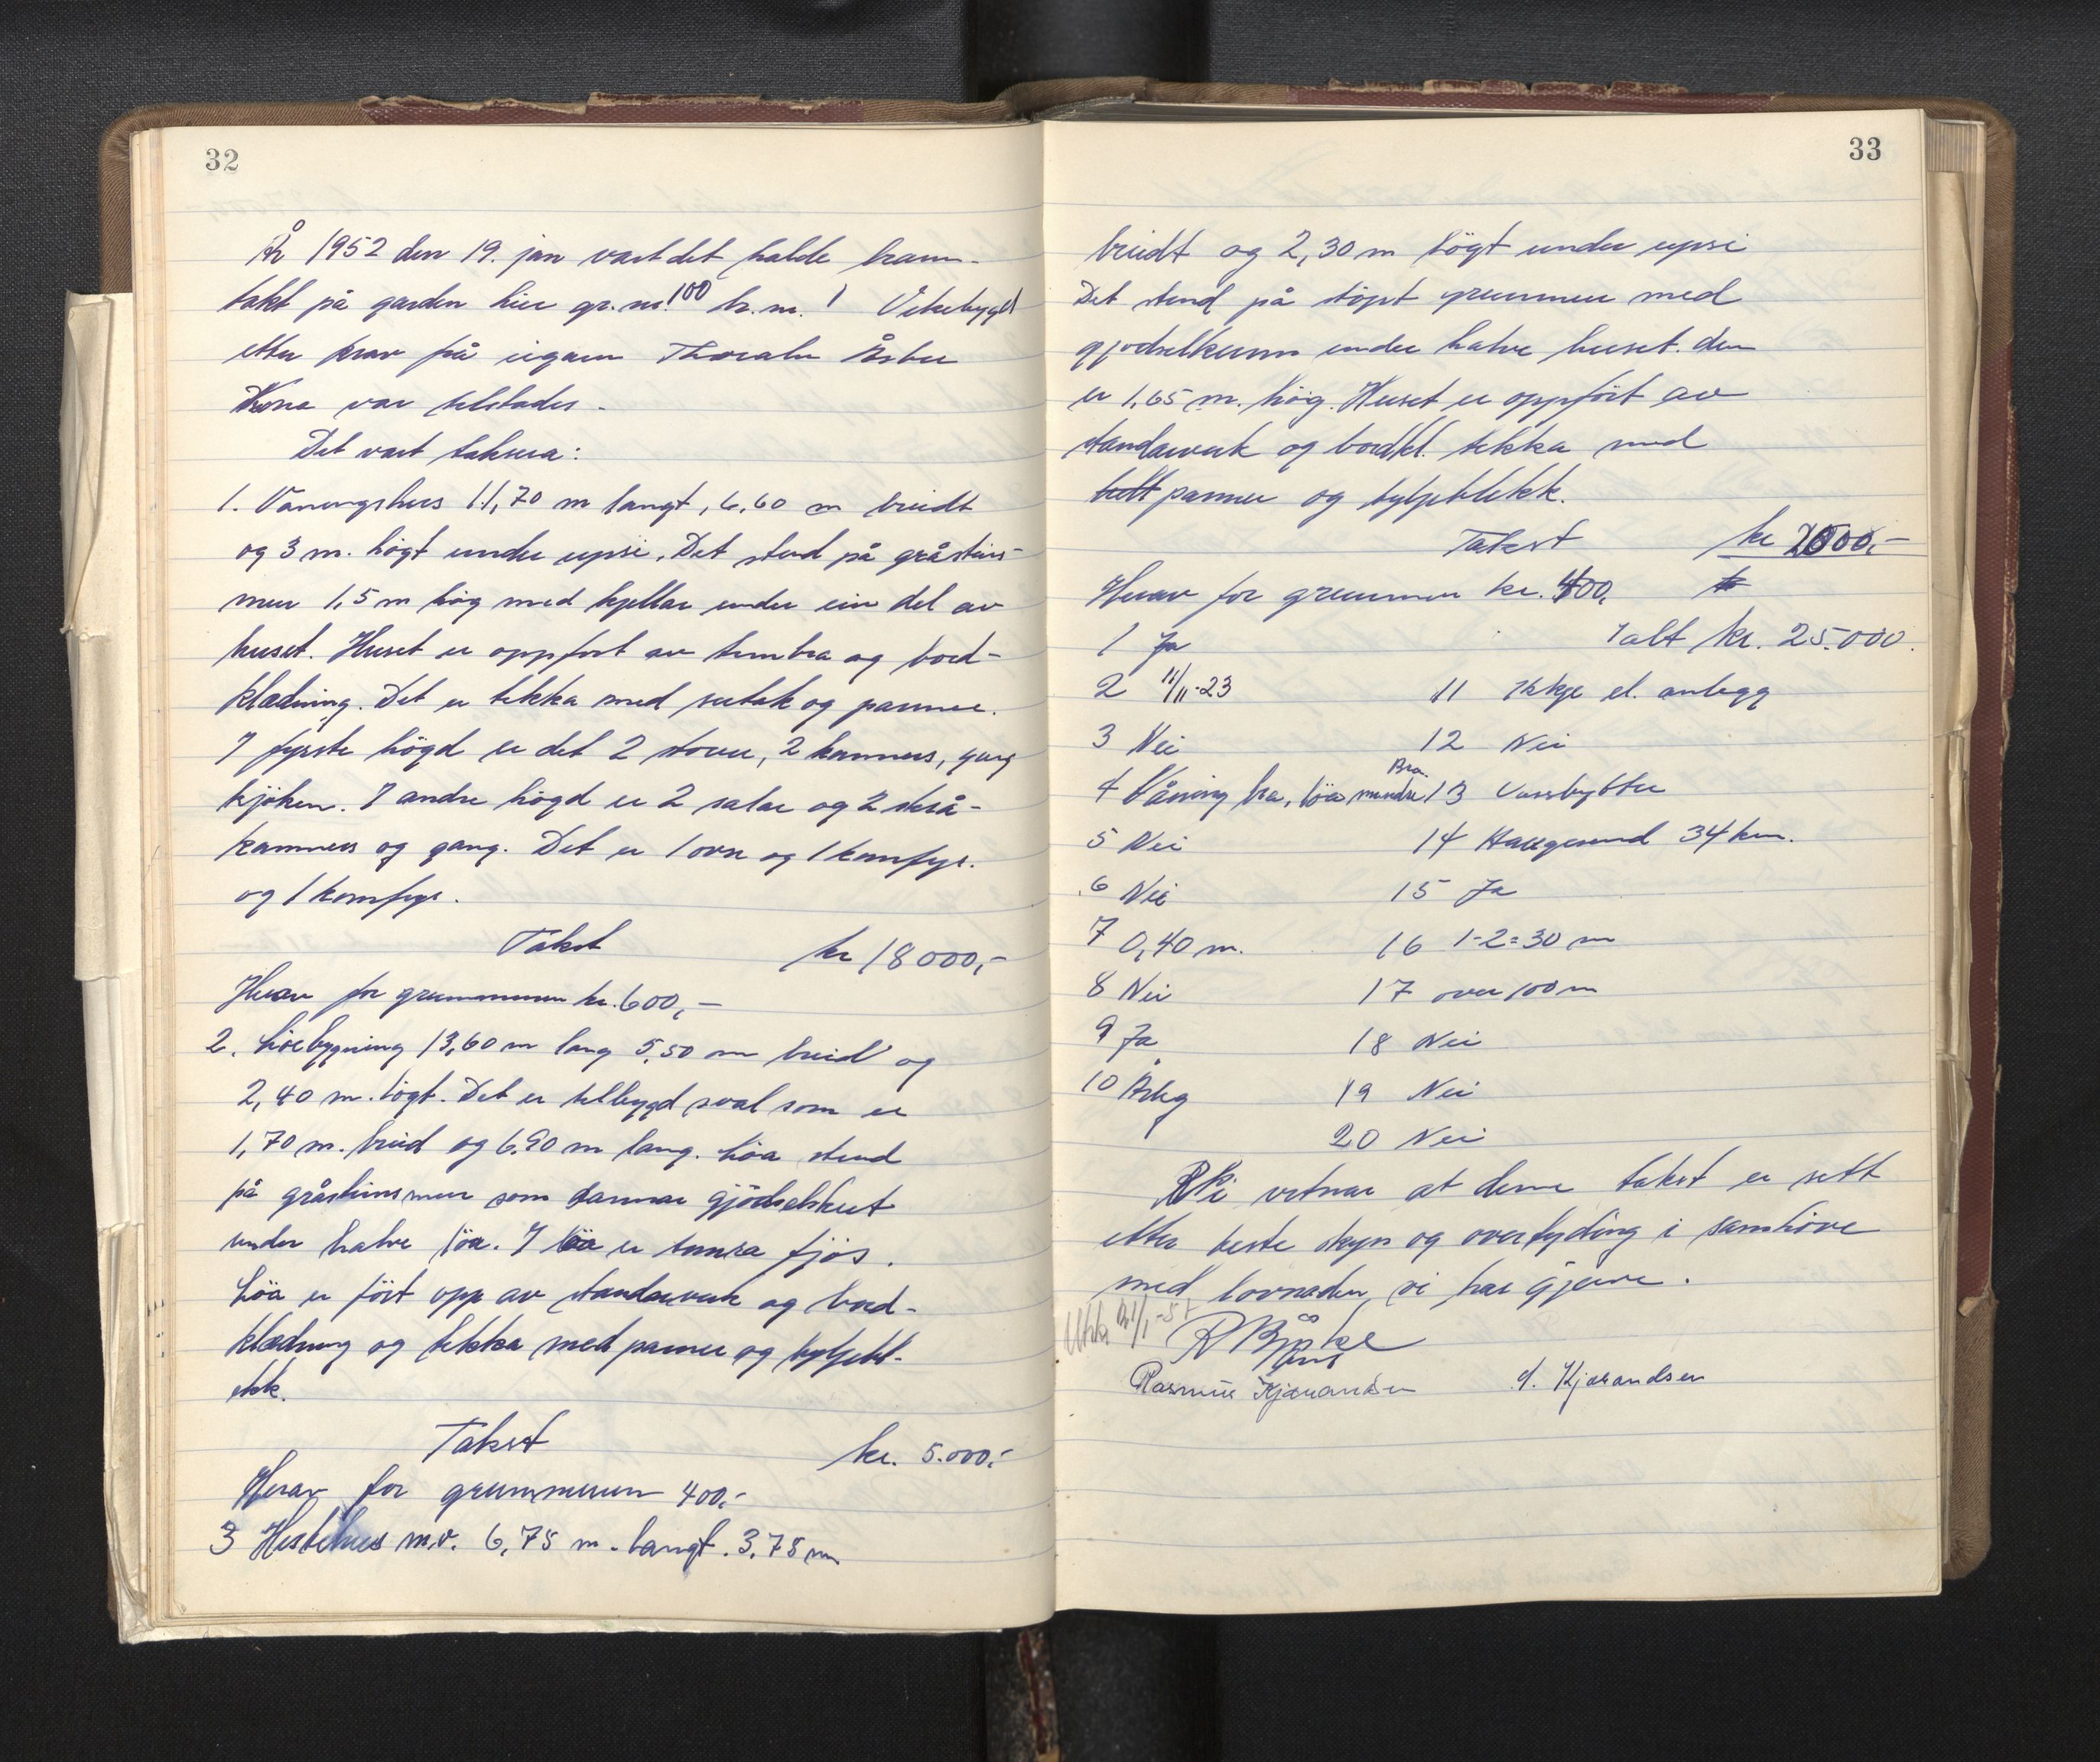 32
År 1952 den 19. jan vart det halde brann-
takst på garden Lier gr.nr. 100 br.nr. 1 Vikebygd
etter krav frå eigaren Thoralv Årbu
Kona var tilstades.
Det vart taksera:
1. Våningshus 11,70 m langt, 6,60 m breidt
og 3 m. högt under upsi. Det stend på gråsteins-
mur 1,5 m høg med kjellar under ein del av
huset. Huset er oppfört av timbra og bord-
klædning. Det er tekka med sutak og pannur.
I fyrste högd er det 2 stovur, 2 kammers, gang
kjöken. I andre högd er 2 salar og 2 skrå-
kammers og gang. Det er 1 ovn og 1 komfyr.
og 1 komfyr.
Takst kr 18000,-
Herav for grunnmuren kr. 600,-
2. Löebygning 13,60 m lang 5,50 m breid og
2,40 m. högt. Det er tilbygd sval som er
1,70 m. breid og 6,90 m lang. Löa stend
på gråsteinsmur som dannar gjödselshut
under halve löa. I löa er innreia fjös.
Löa er fört opp av standarverk og bord-
klædning og tekka med pannur og bylgjebl-
ekk.
Takst kr. 5.000,-
Herav for grunnmuren 400,-
3 Hestehus m.v. 6,75 m. langt. 3,75 m
33
breidt og 2,30 m högt under upsi
Det stend på stöypt grunnmur med
gjödselkum under halve huset. den
er 1,65 m. høg. Huset er oppfört av
standarverk og bordkl. tekka med
pannur og bylgjeblekk.
Takst kr 2000,-
Herav for grunnmur kr. 400, kr
1 Ja I alt kr. 25.000.
2 11/11-23 11 Ikkje el. anlegg
3 Nei 12 Nei
4 Våning bra, löa mindre Bra. 13 Vassbyttur
5 Nei 14 Haugesund 34 km.
6 Nei 15 Ja
7 0,40 m. 16 1-2=30 m
8 Nei 17 over 100 m
9 Ja 18 Nei
10 Årleg 19 Nei
20 Nei
Vi vitnar at denne takst er sett
etter beste skyn og overtyding i samhöve
med lovnaden vi har gjeve.
R Bjørke
Rasmus Kjærandsen d. Kjærandsen